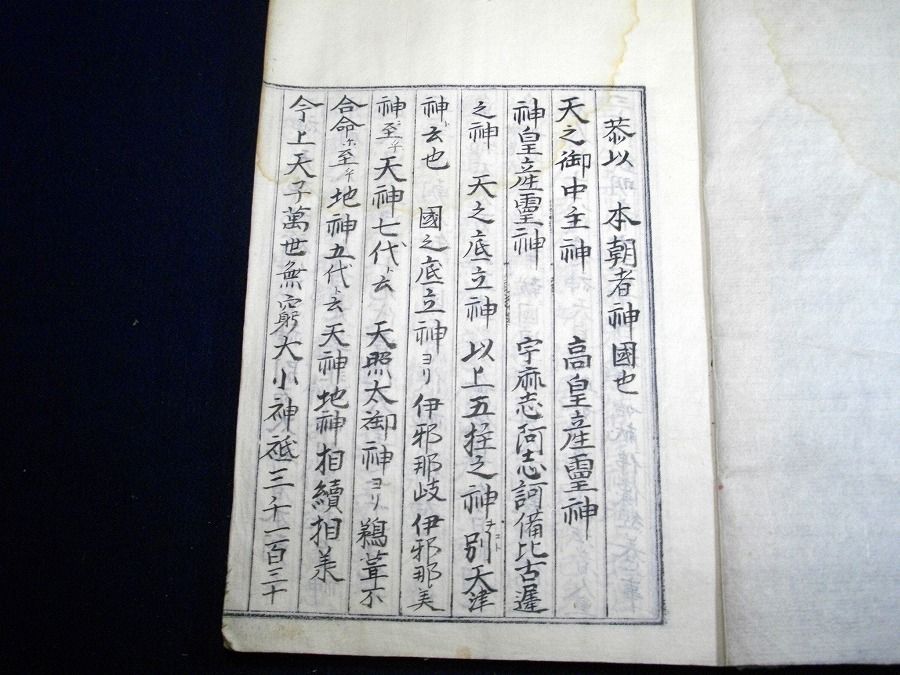 恭以明 本朝者神國也
天之御中主神 高皇産靈神
神皇産靈神 宇麻志阿志訶備比古遲
之神 天之底立神 以上五柱之神ヲ別天津
神ト云也 國之底立神ヨリ伊邪那岐伊邪那美
神ニ至テ天神七代ト云 天照太御神ヨリ鵜葺不
合命ニ至テ地神五代ト云天神地神相續相承
今上天子萬世無窮大小神祗三千一百三十